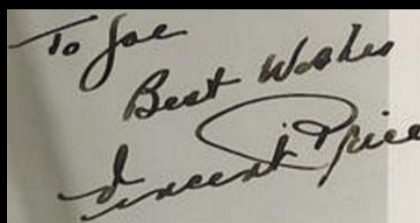 To Joe
Best Wishes
Vincent Price